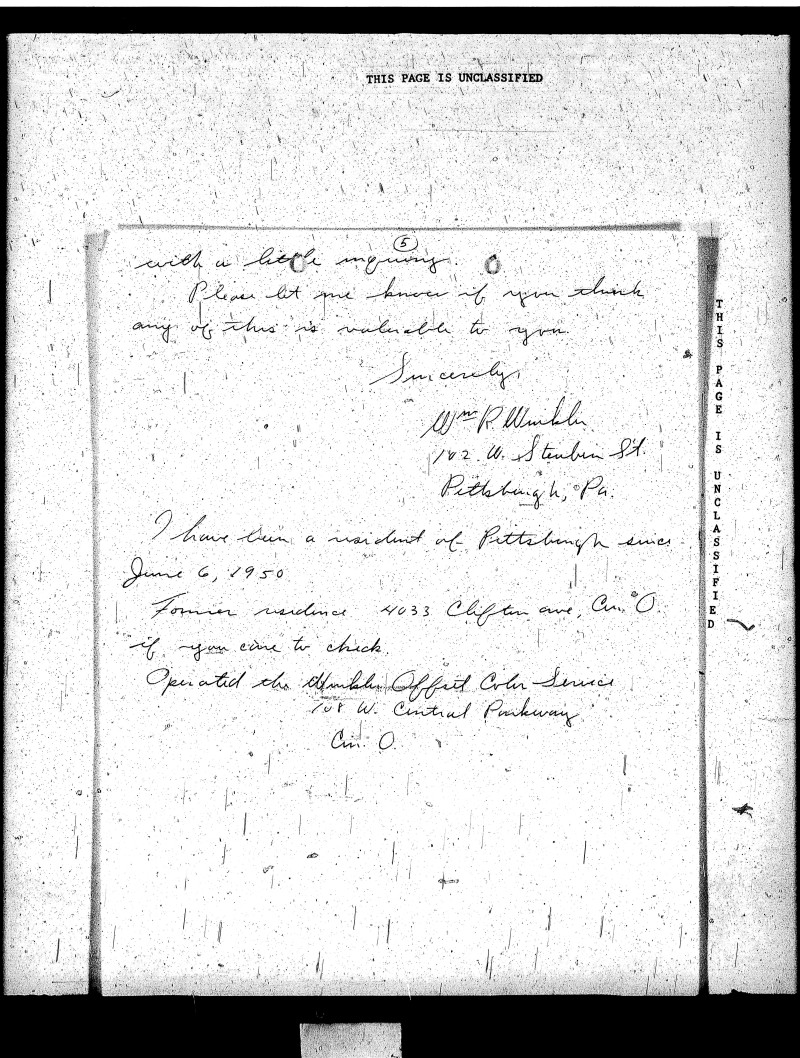 THIS PAGE IS UNCLASSIFIED
5
with a little inquiring.
Please let me know if you think
any of this is valuable to you.
Sincerely,
Wm R. Winkler
102 W. Steuben St.
Pittsburgh, Pa.
I have been a resident of Pittsburgh since
June 6, 1950
Former residence 4033 Clifton ave, Cin. O.
if you care to check.
Operated the Winkler Offset Color Service
108 W. Central Parkway
Cin. O.
THIS PAGE IS UNCLASSIFIED